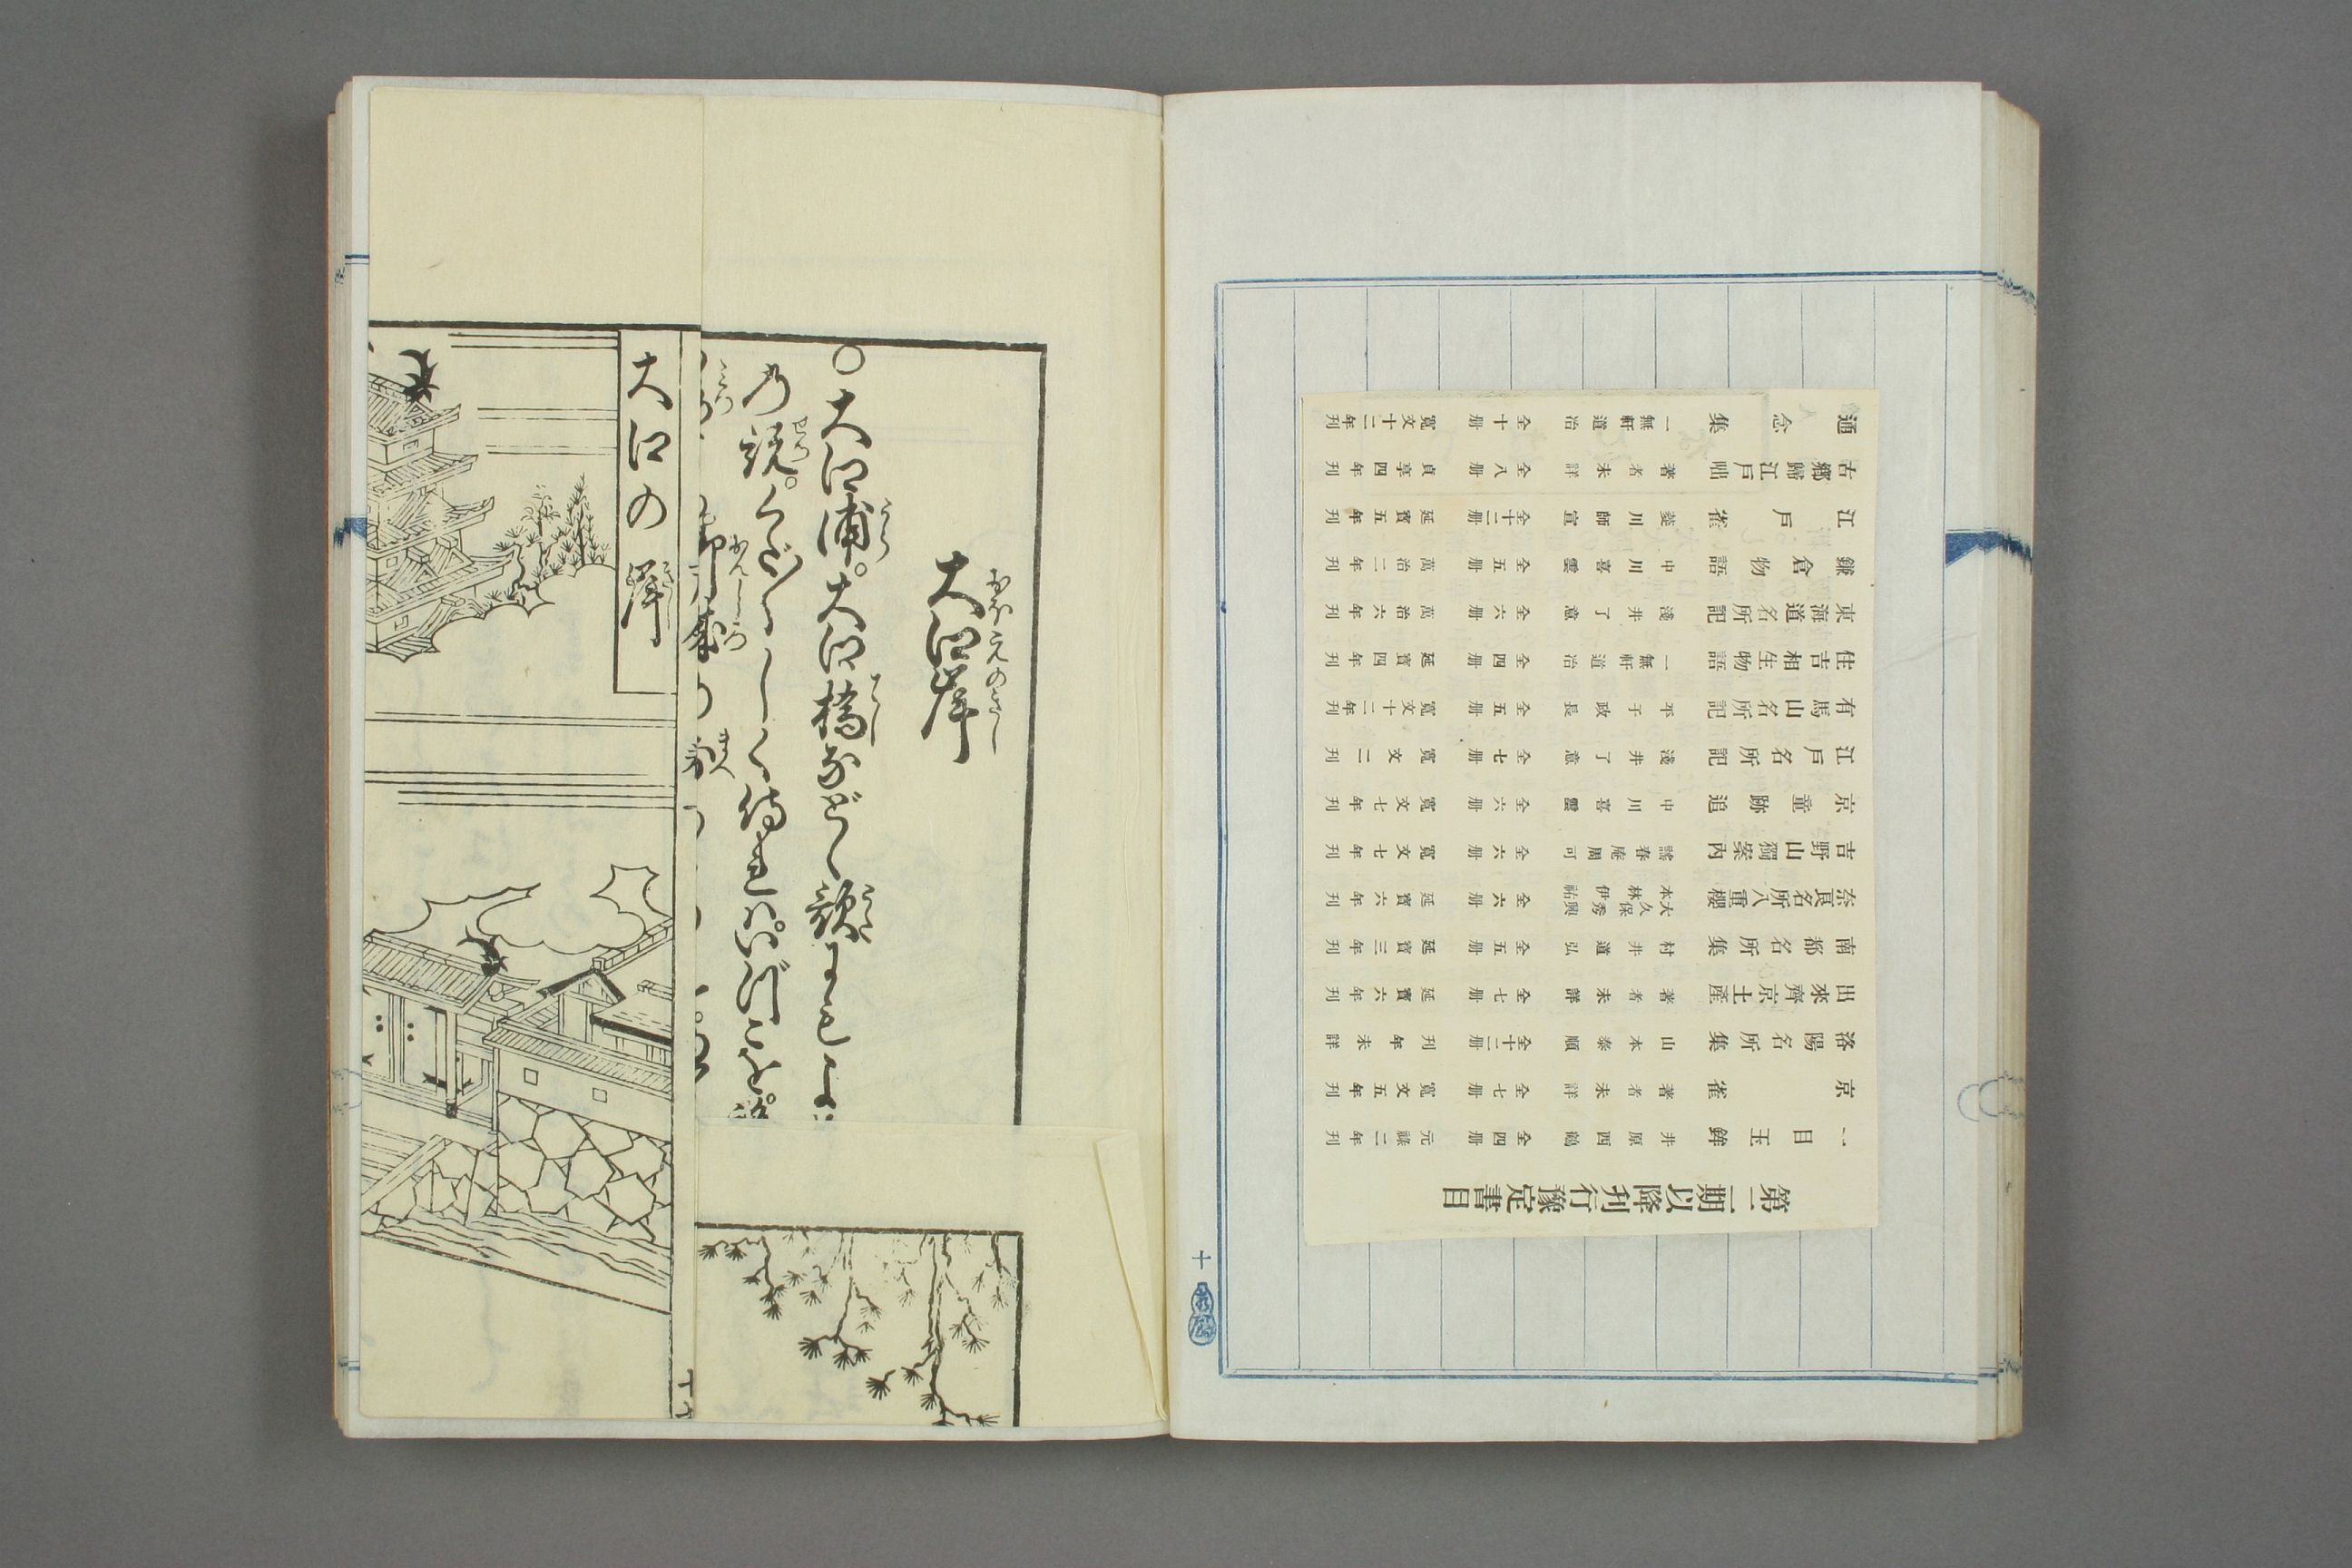 第二期以降刊行豫定書目
一目玉鉾 井原西鶴 全四册 元祿二年刊
京雀 著者未詳 全七册 寬文五年刊
洛陽名所集 山本泰順 全十二册 刊年未詳
出來齋京土產 著者未詳 全七册 延寶六年刊
南都名所集 村井道弘 全五册 延寶三年刊
奈良名所八重櫻 大久保秀興 本林伊祐 全六册 延寶六年刊
吉野山獨案內 謠春庵周可 全六册 寬文七年刊
京童跡追 中川喜雲 全六册 寬文七年刊
江戶名所記 淺井了意 全七册 寬文二刊
有馬山名所記 平子政長 全五册 寬文十二年刊
住吉相生物語 一無軒道冶 全四册 延寶四年刊
東海道名所記 淺井了意 全六册 萬治六年刊
鎌倉物語 中川喜雲 全五册 萬治二年刊
江戶雀 菱川師宣 全十二册 延寶五年刊
古鄉歸江戶咄 著者未詳 全八册 貞享四年刊
通念集 一無軒道冶 全十册 寬文十二年刊
十
大江岸
○大江浦。大江橋などゝ歌にもよ
の説。くだ〳〵しく侍れバ。いづこを
大江の岸